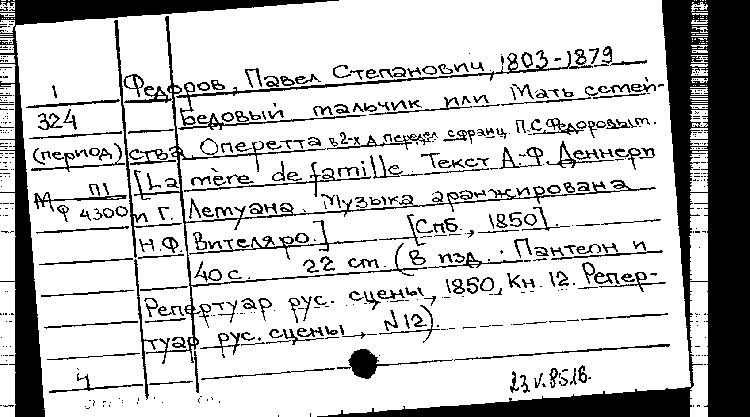 1
324
(период)
М П1
ф 4300
Федоров, Павел Степанович, 1803-1879
Бедовый мальчик или Мать семей-
ства. Оперетта в 2-х д. передел. с франц. П.С. Федоровым.
[La mère de famille. Текст А.-Ф. Деннери
и Г. Лемуана. Музыка аранжирована
Н.Ф. Вителяро.] [Спб., 1850]
40 с. 22 см (В изд.: Пантеон и
Репертуар рус. сцены, 1850, Кн. 12. Репер-
туар рус. сцены, N 12).
4
23.V.85